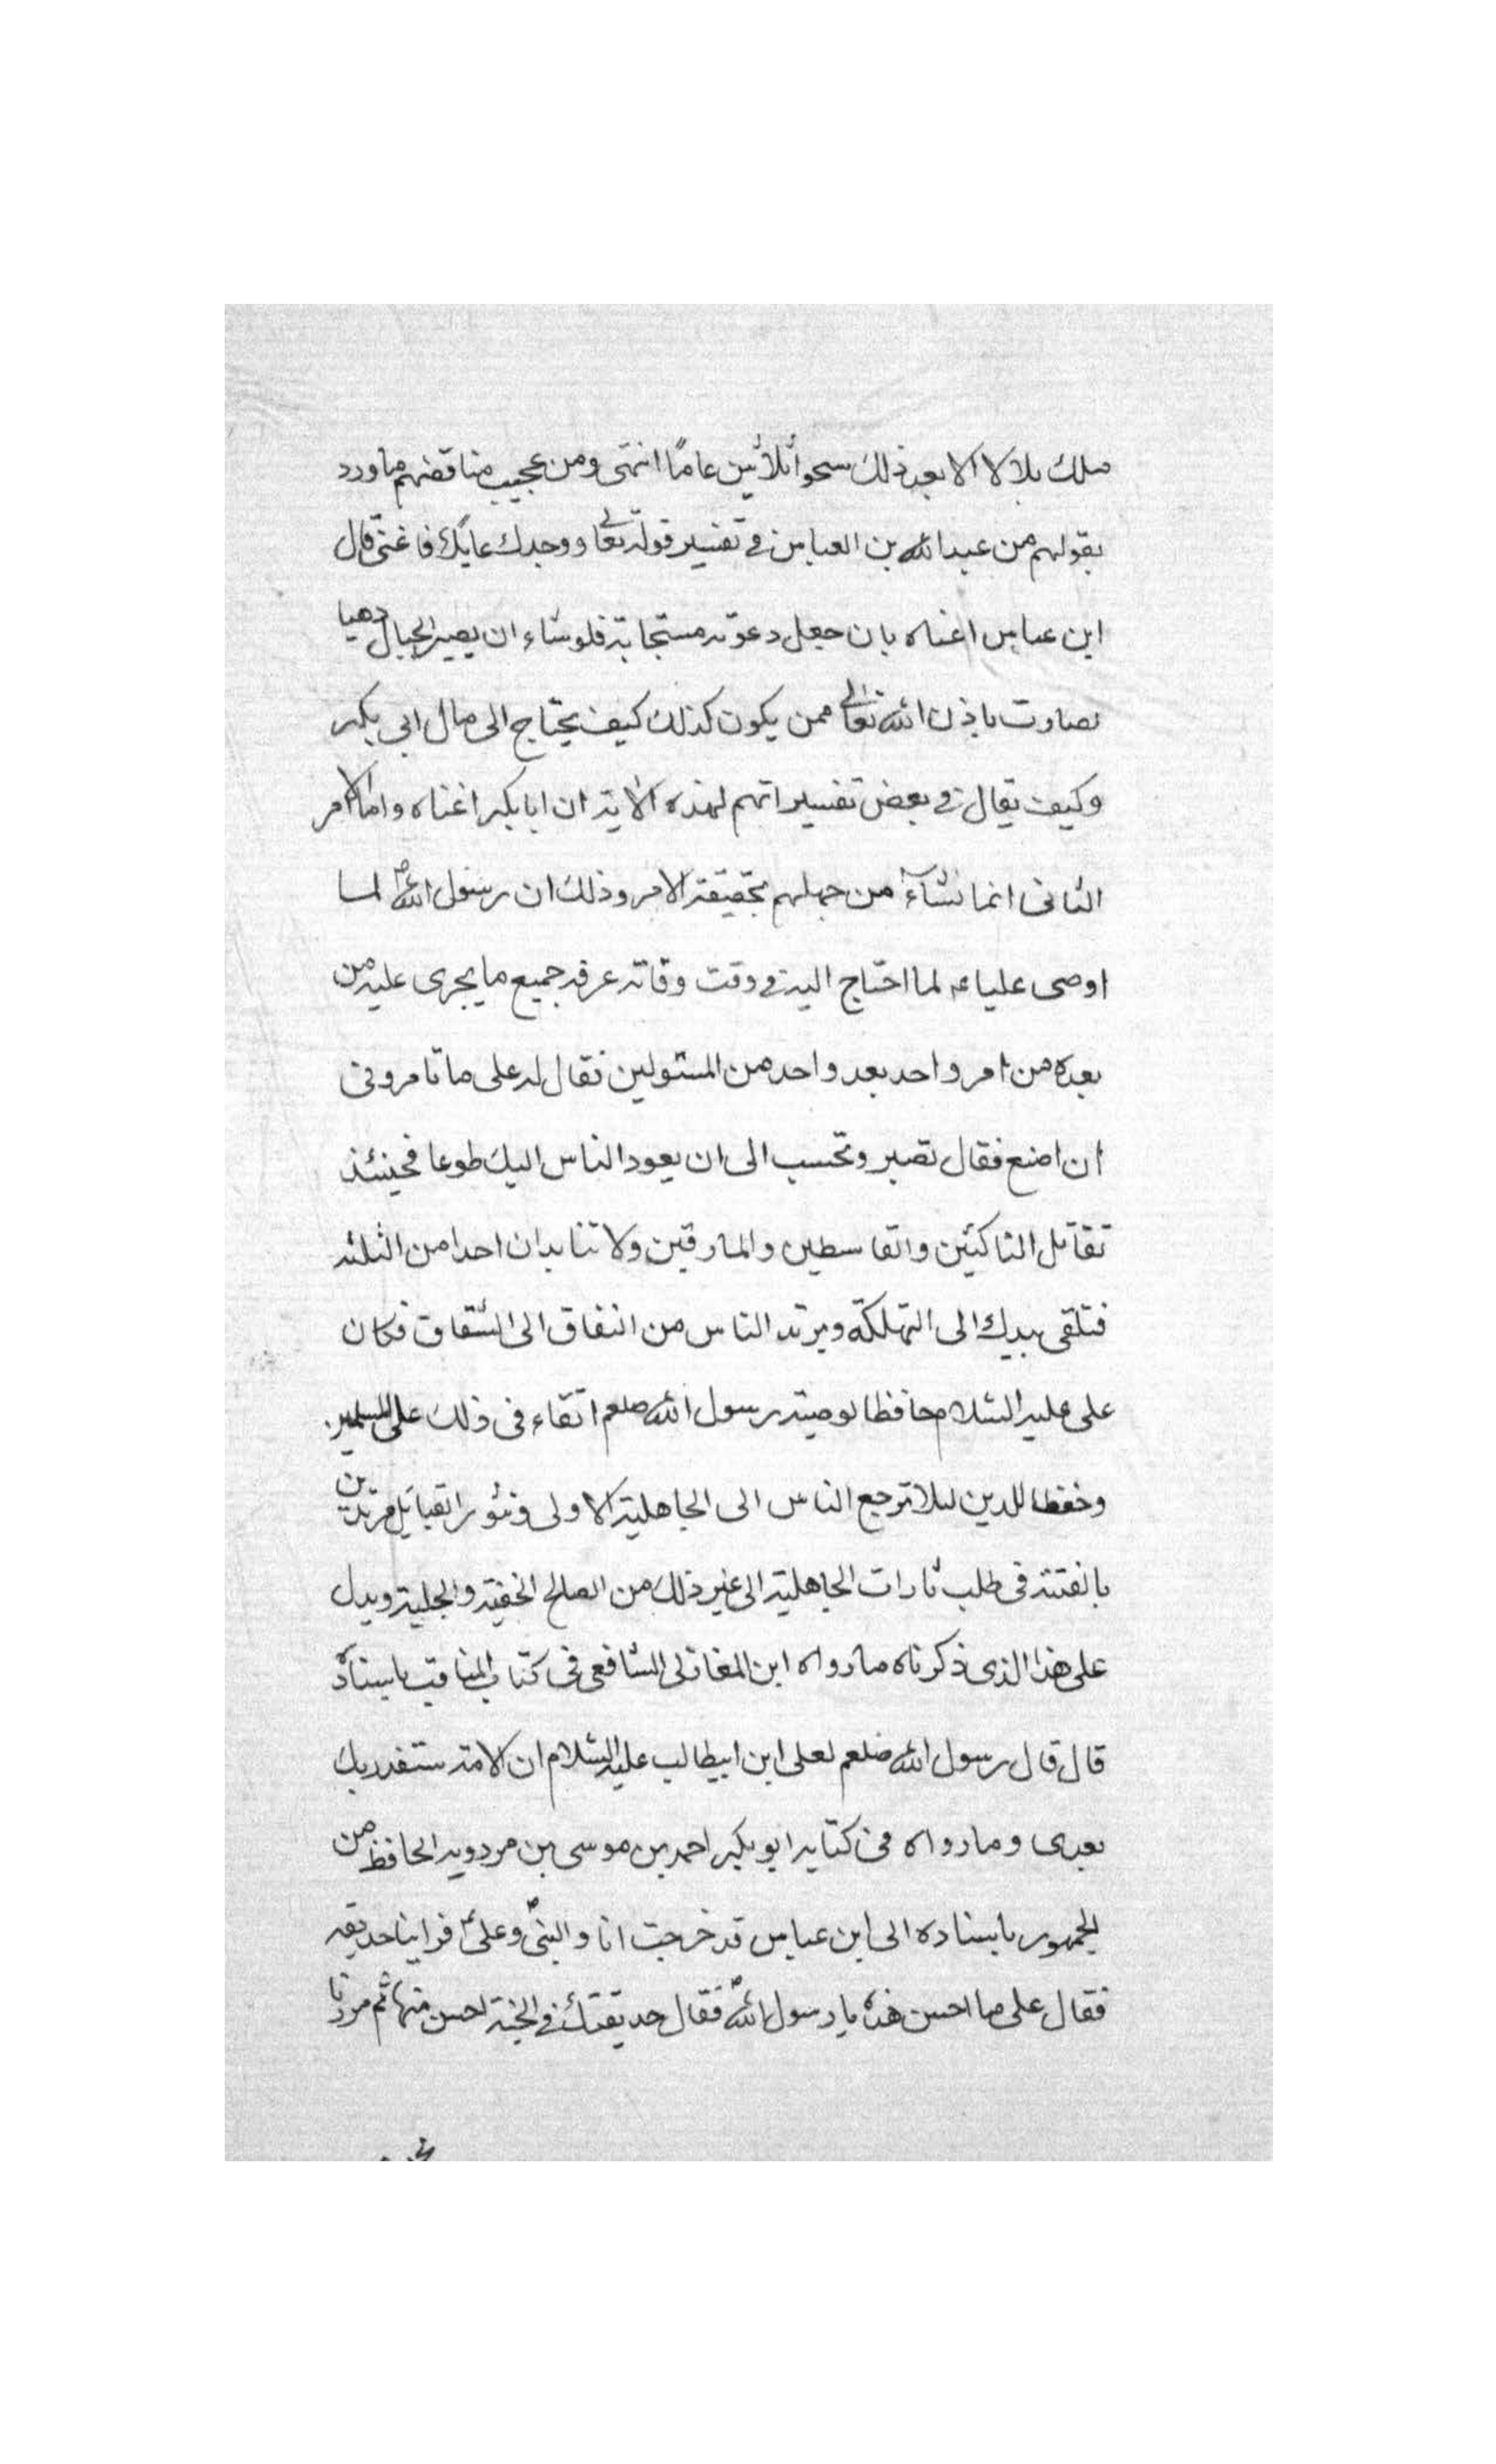 ملك بلالا الا بعد ذلك بنحو ثلاثين عاماً انتهى ومن عجيب مناقضتهم ما ورد
بقولهم من عبد الله بن العباس في تفسير قوله تعالى ووجدك عائلا فاغنى قال
ابن عباس اغناه بان جعل دعوته مستجابة فلو شاء ان يصير الجبال ذهبا
لصارت باذن الله تعالى فمن يكون كذلك كيف يحتاج الى مال ابي بكر
وكيف يقال في بعض تفسيراتهم لهذه الاية ان ابابكر اغناه واما الامر
الثانى انما نشاء من جهلهم بحقيقة الامر وذلك ان رسول الله ص لما
اوصى عليا ع لما احتاج اليه في وقت وفاته عرفه جميع ما يجرى عليه من
بعده من امر واحد بعد واحد من المتولين فقال له على ما تامرونى
ان اصنع فقال تصبر وتحتسب الى ان يعود الناس اليك طوعا فحينئذ
تقاتل الناكثين والقاسطين والمارقين ولا تنابذن احدا من الثلثة
فتلقى بيدك الى التهلكة ويرتد الناس من النفاق الى الشقاق فكان
على عليه السلام حافظا لوصية رسول الله صلعم اتقاء فى ذلك على المسلمين
وحفظا للدين لئلا ترجع الناس الى الجاهلية الاولى وتثور القبائل مريدين
بالفتنة فى طلب ثارات الجاهلية الى غير ذلك من المصالح الخفية والجلية ويدل
على هذا الذى ذكرناه ما رواه ابن المغازلى الشافعى فى كتاب المناقب باسناده
قال قال رسول الله صلعم لعلى ابن ابيطالب عليه السلام ان الامة ستغدر بك
بعدى وما رواه فى كتابه ابو بكر احمد بن موسى بن مردويه الحافظ من
الجمهور باسناده الى ابن عباس قد خرجت انا والنبى ص وعلى ع فراينا حديقة
فقال على ما احسن هذه يا رسول الله ص فقال حديقتك في الجنة احسن منها ثم مررنا